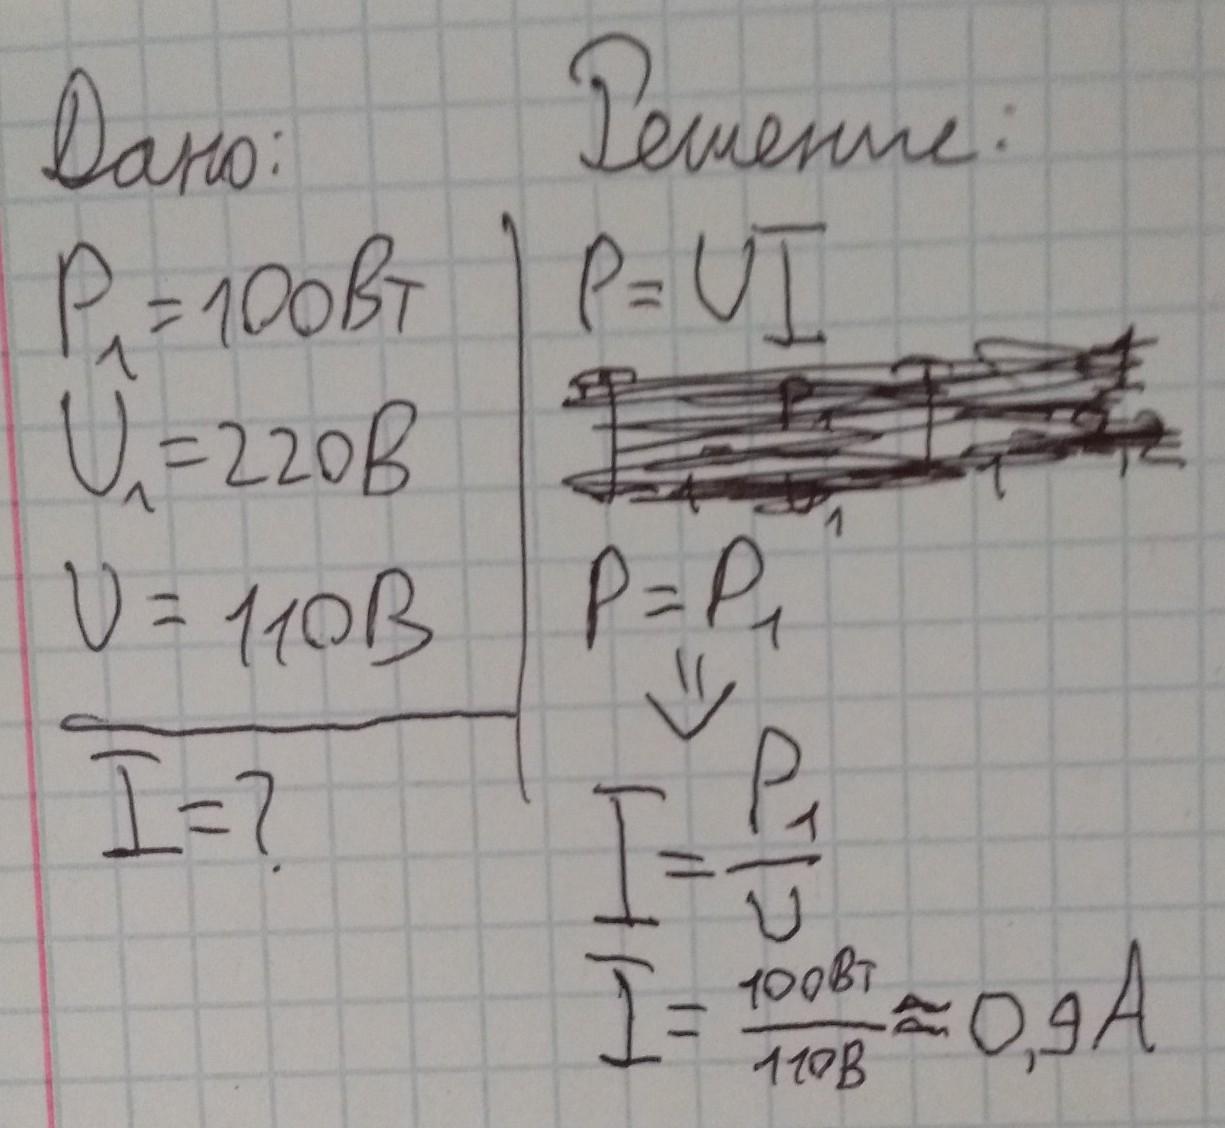 Дано:
P₁ = 100Вт
U₁ = 220В
U = 110В
I = ?
Решение:
P = UI
P = P₁
⇓
I = P₁/U
I = 100Вт/110В ≈ 0,9А